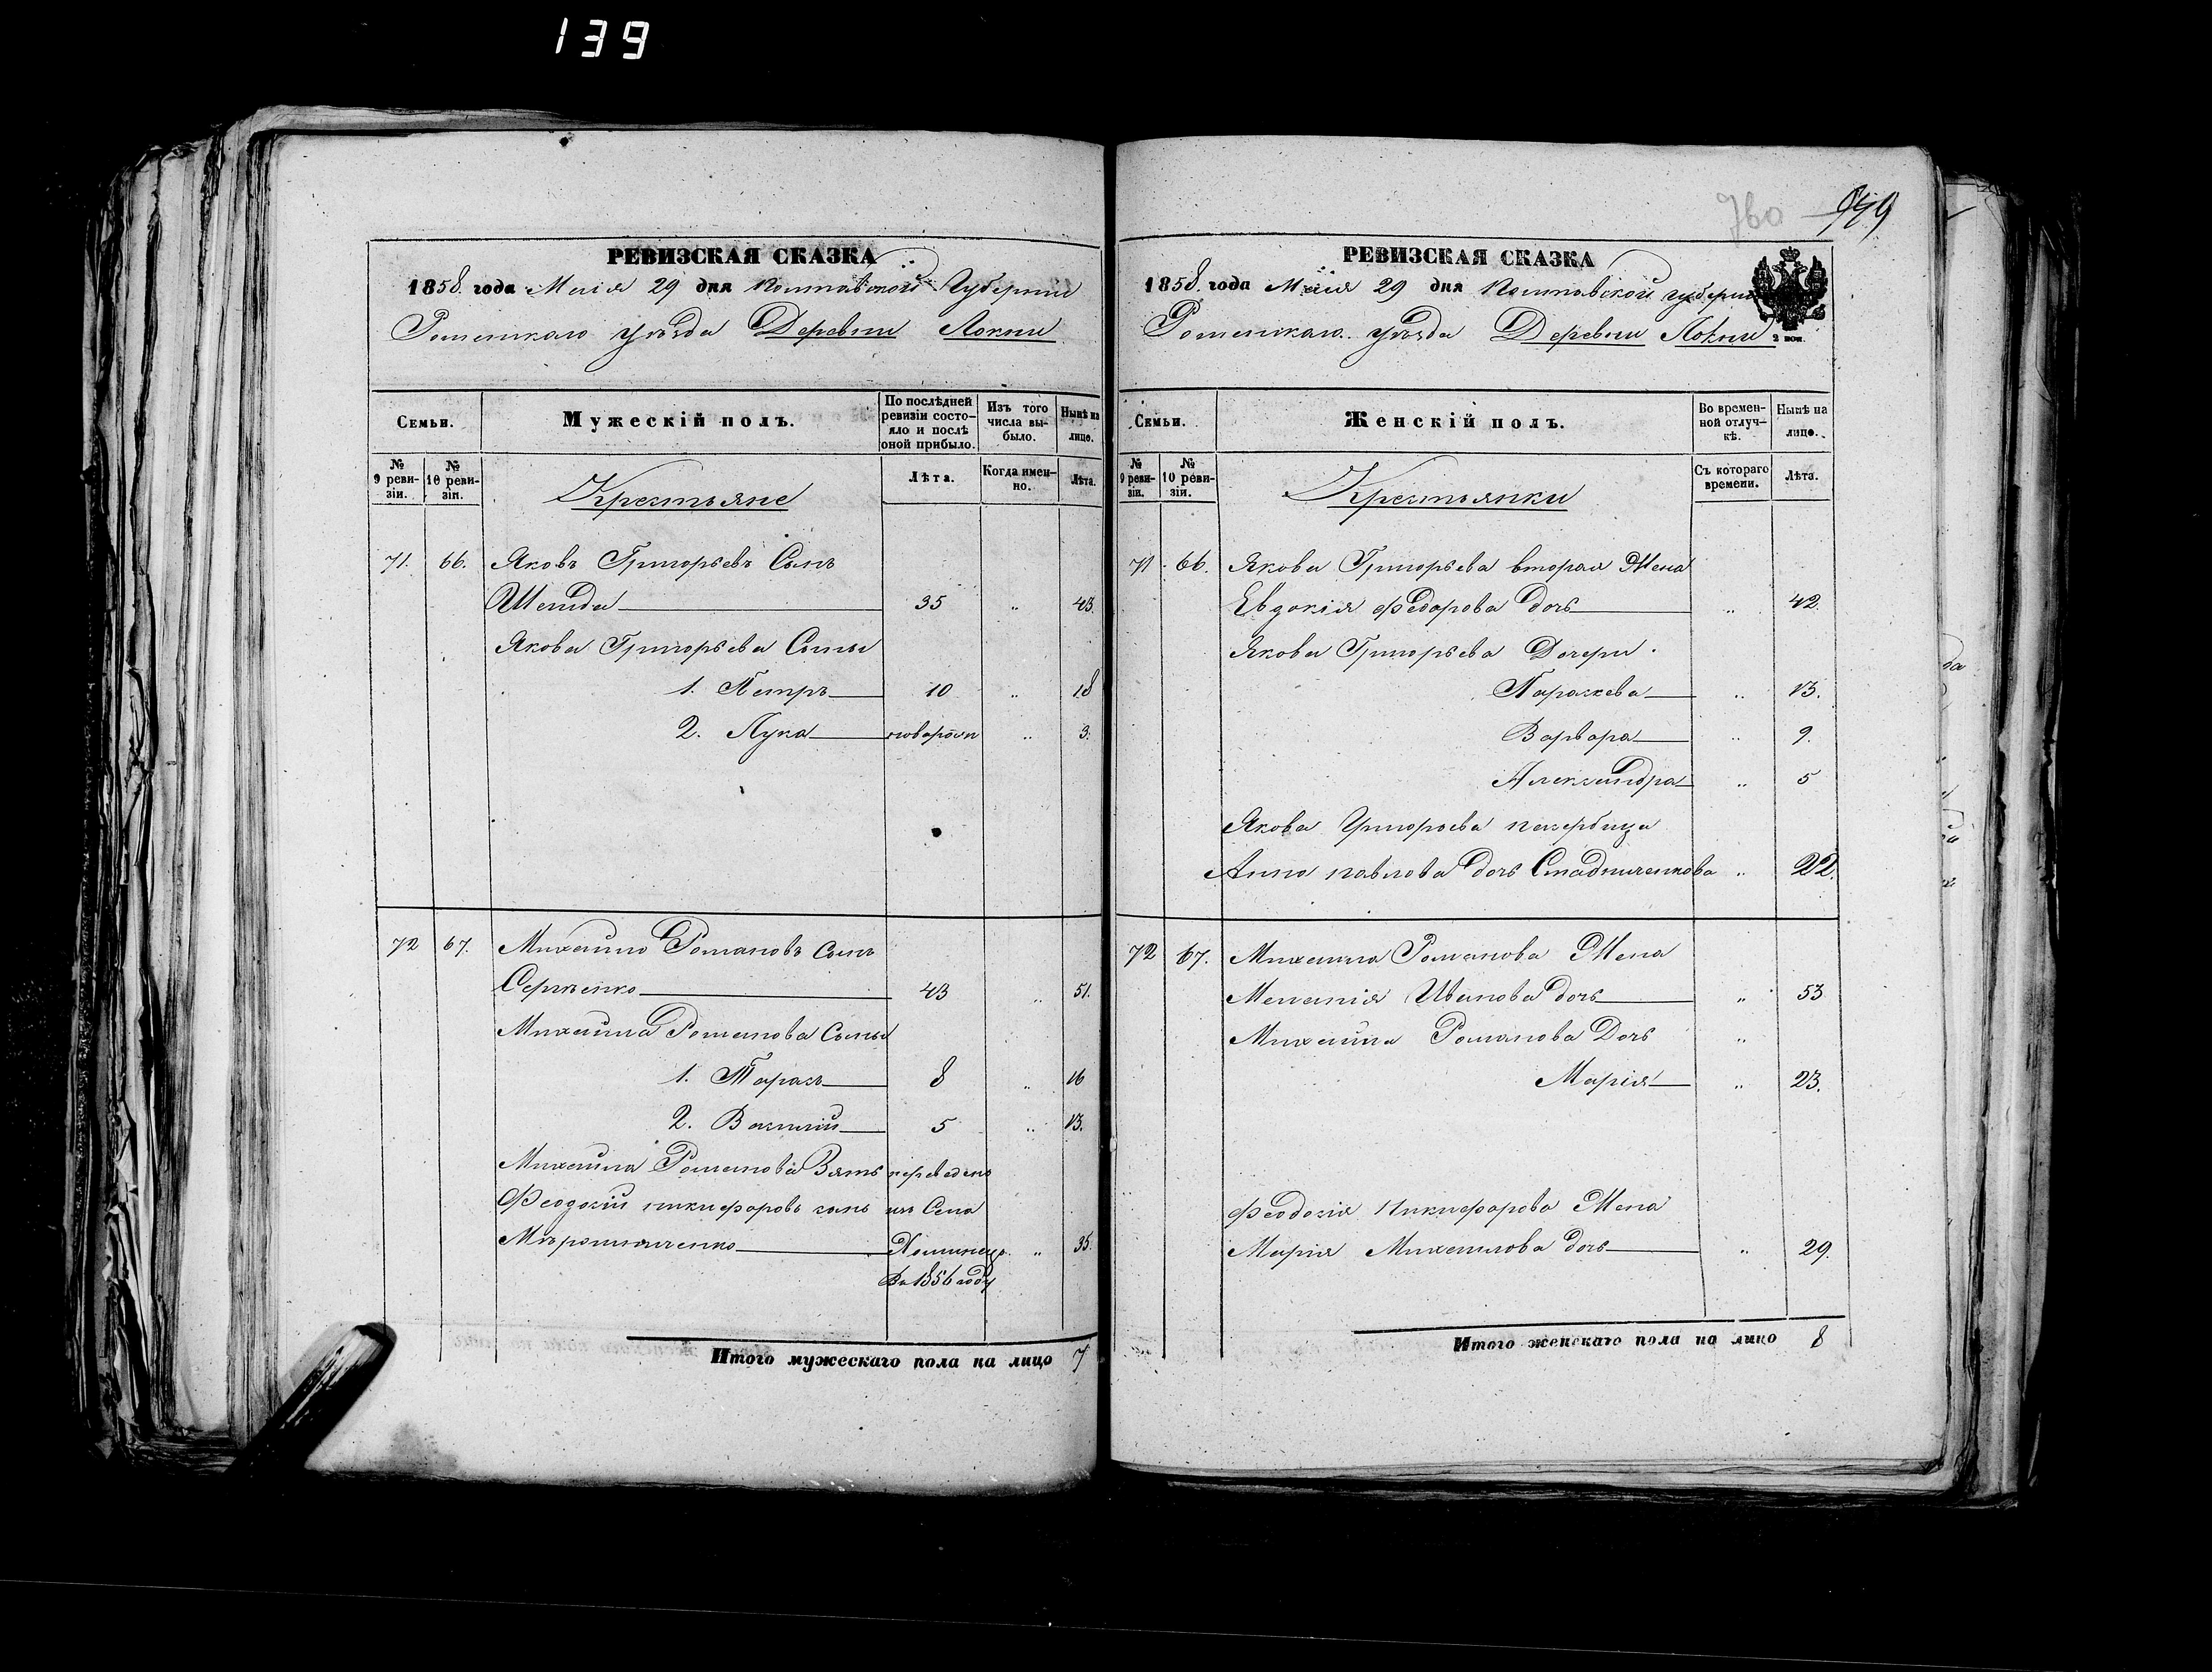 139
760 779
РЕВИЗСКАЯ СКАЗКА
1858. года Маія 29 дня Полтавской Губерніи
Роменскаго уѣзда Деревни Локни
Семьи. Мужескій полъ. По послѣдней ревизіи состояло и послѣ оной прибыло. Изъ того числа выбыло. Нынѣ на лице.
№ 9 ревизіи. № 10 ревизіи. Лѣта. Когда именно. Лѣта.
Крестьяне
71. 66. Яковъ Григорьевъ Сынъ
35 „ 43.
Якова Григорьева Сыны
1. Петръ 10 „ 18
2. Лука новорожд „ 3.
72 67. Михайло Романовъ сынъ
Сергѣенко 43 „ 51.
Михайла Романова Сыны
1. Тарасъ 8 „ 16
2. Василій 5 „ 13.
Михайла Романова Зять переведенъ
Феодосій никифоровъ сынъ изъ Села
Мѣрошниченко „ 35.
Въ 1856 году
Итого мужескаго пола на лицо 7
РЕВИЗСКАЯ СКАЗКА
1858. года Маія 29 дня Полтавской губерніи
Роменскаго уѣзда Деревни Локни 2 пол.
Семьи. Женскій полъ. Во временной отлучкѣ. Нынѣ на лице.
№ 9 ревизіи. № 10 ревизіи. Съ котораго времени. Лѣта.
Крестьянки
71. 66. Якова Григорьева вторая Жена
Евдокія Федорова дочь „ 42.
Якова Григорьева Дочери.
Параскева „ 13.
Варвара „ 9.
Александра „ 5
Якова Григорьева падчерица
Анна павлова дочь Стадниченкова „ 22.
72 67. Михайла Романова Жена
Меланія Иванова дочь „ 53
Михайла Романова Дочь „
Марія „ 23.
Феодосія Никифорова Жена
Марія Михайлова дочь „ 29.
Итого женскаго пола на лицо 8